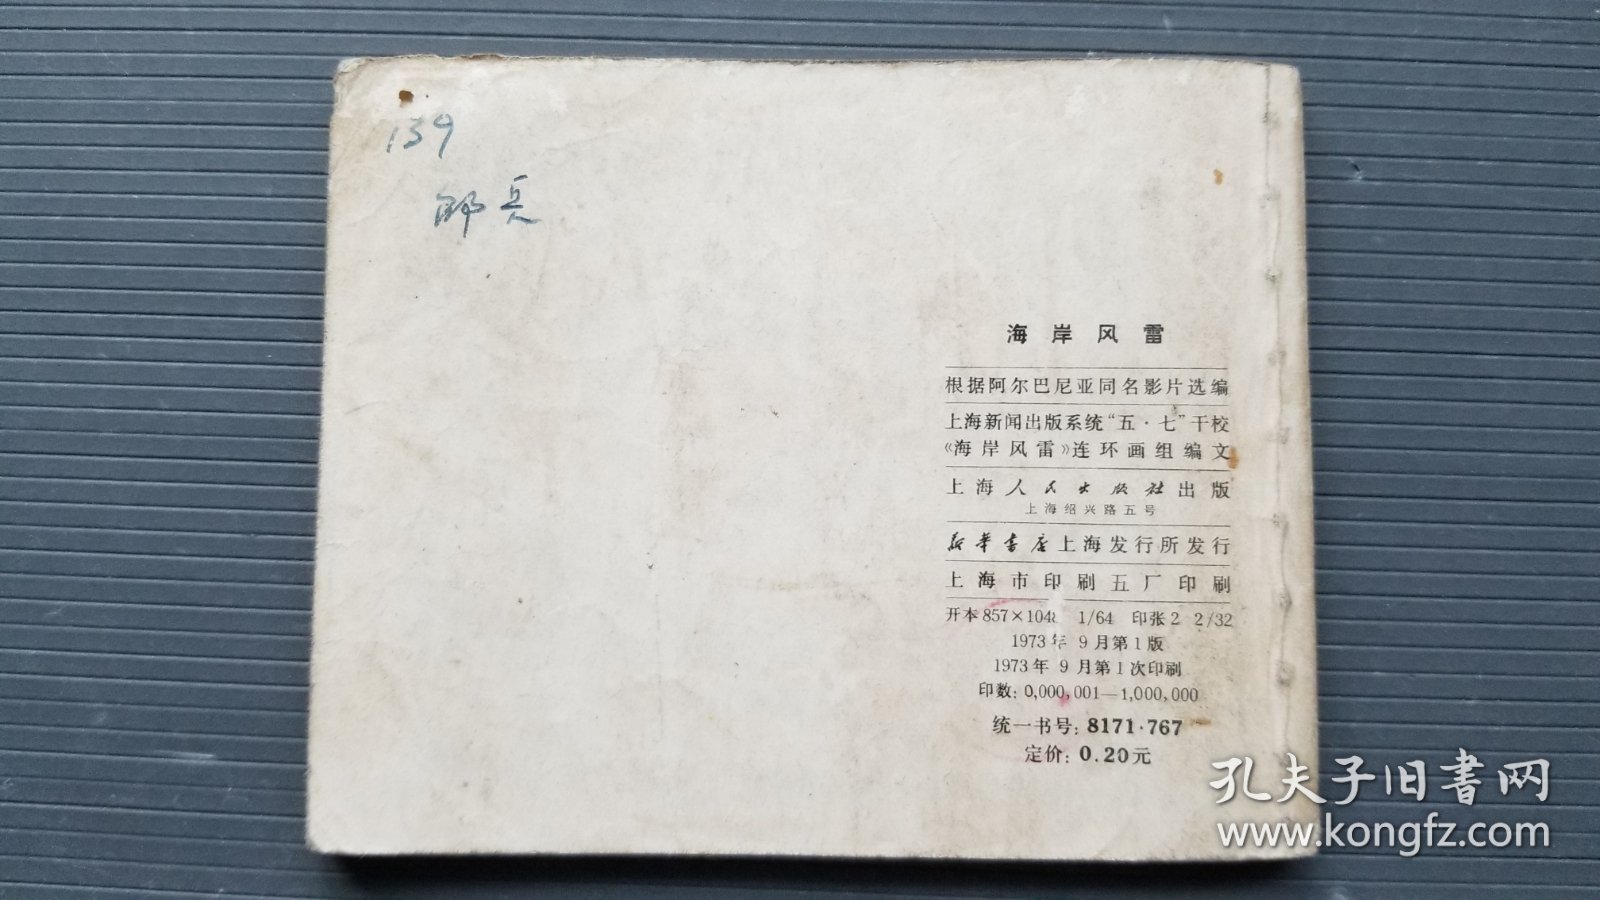 139
邹兵
海岸风雷
根据阿尔巴尼亚同名影片选编
上海新闻出版系统“五·七”干校
《海岸风雷》连环画组编文
上海人民出版社出版
上海绍兴路五号
新华书店上海发行所发行
上海市印刷五厂印刷
开本 857×1048 1/64 印张 2 2/32
1973年9月第1版
1973年9月第1次印刷
印数: 0,000,001—1,000,000
统一书号: 8171·767
定价: 0.20元
孔夫子旧书网
www.kongfz.com